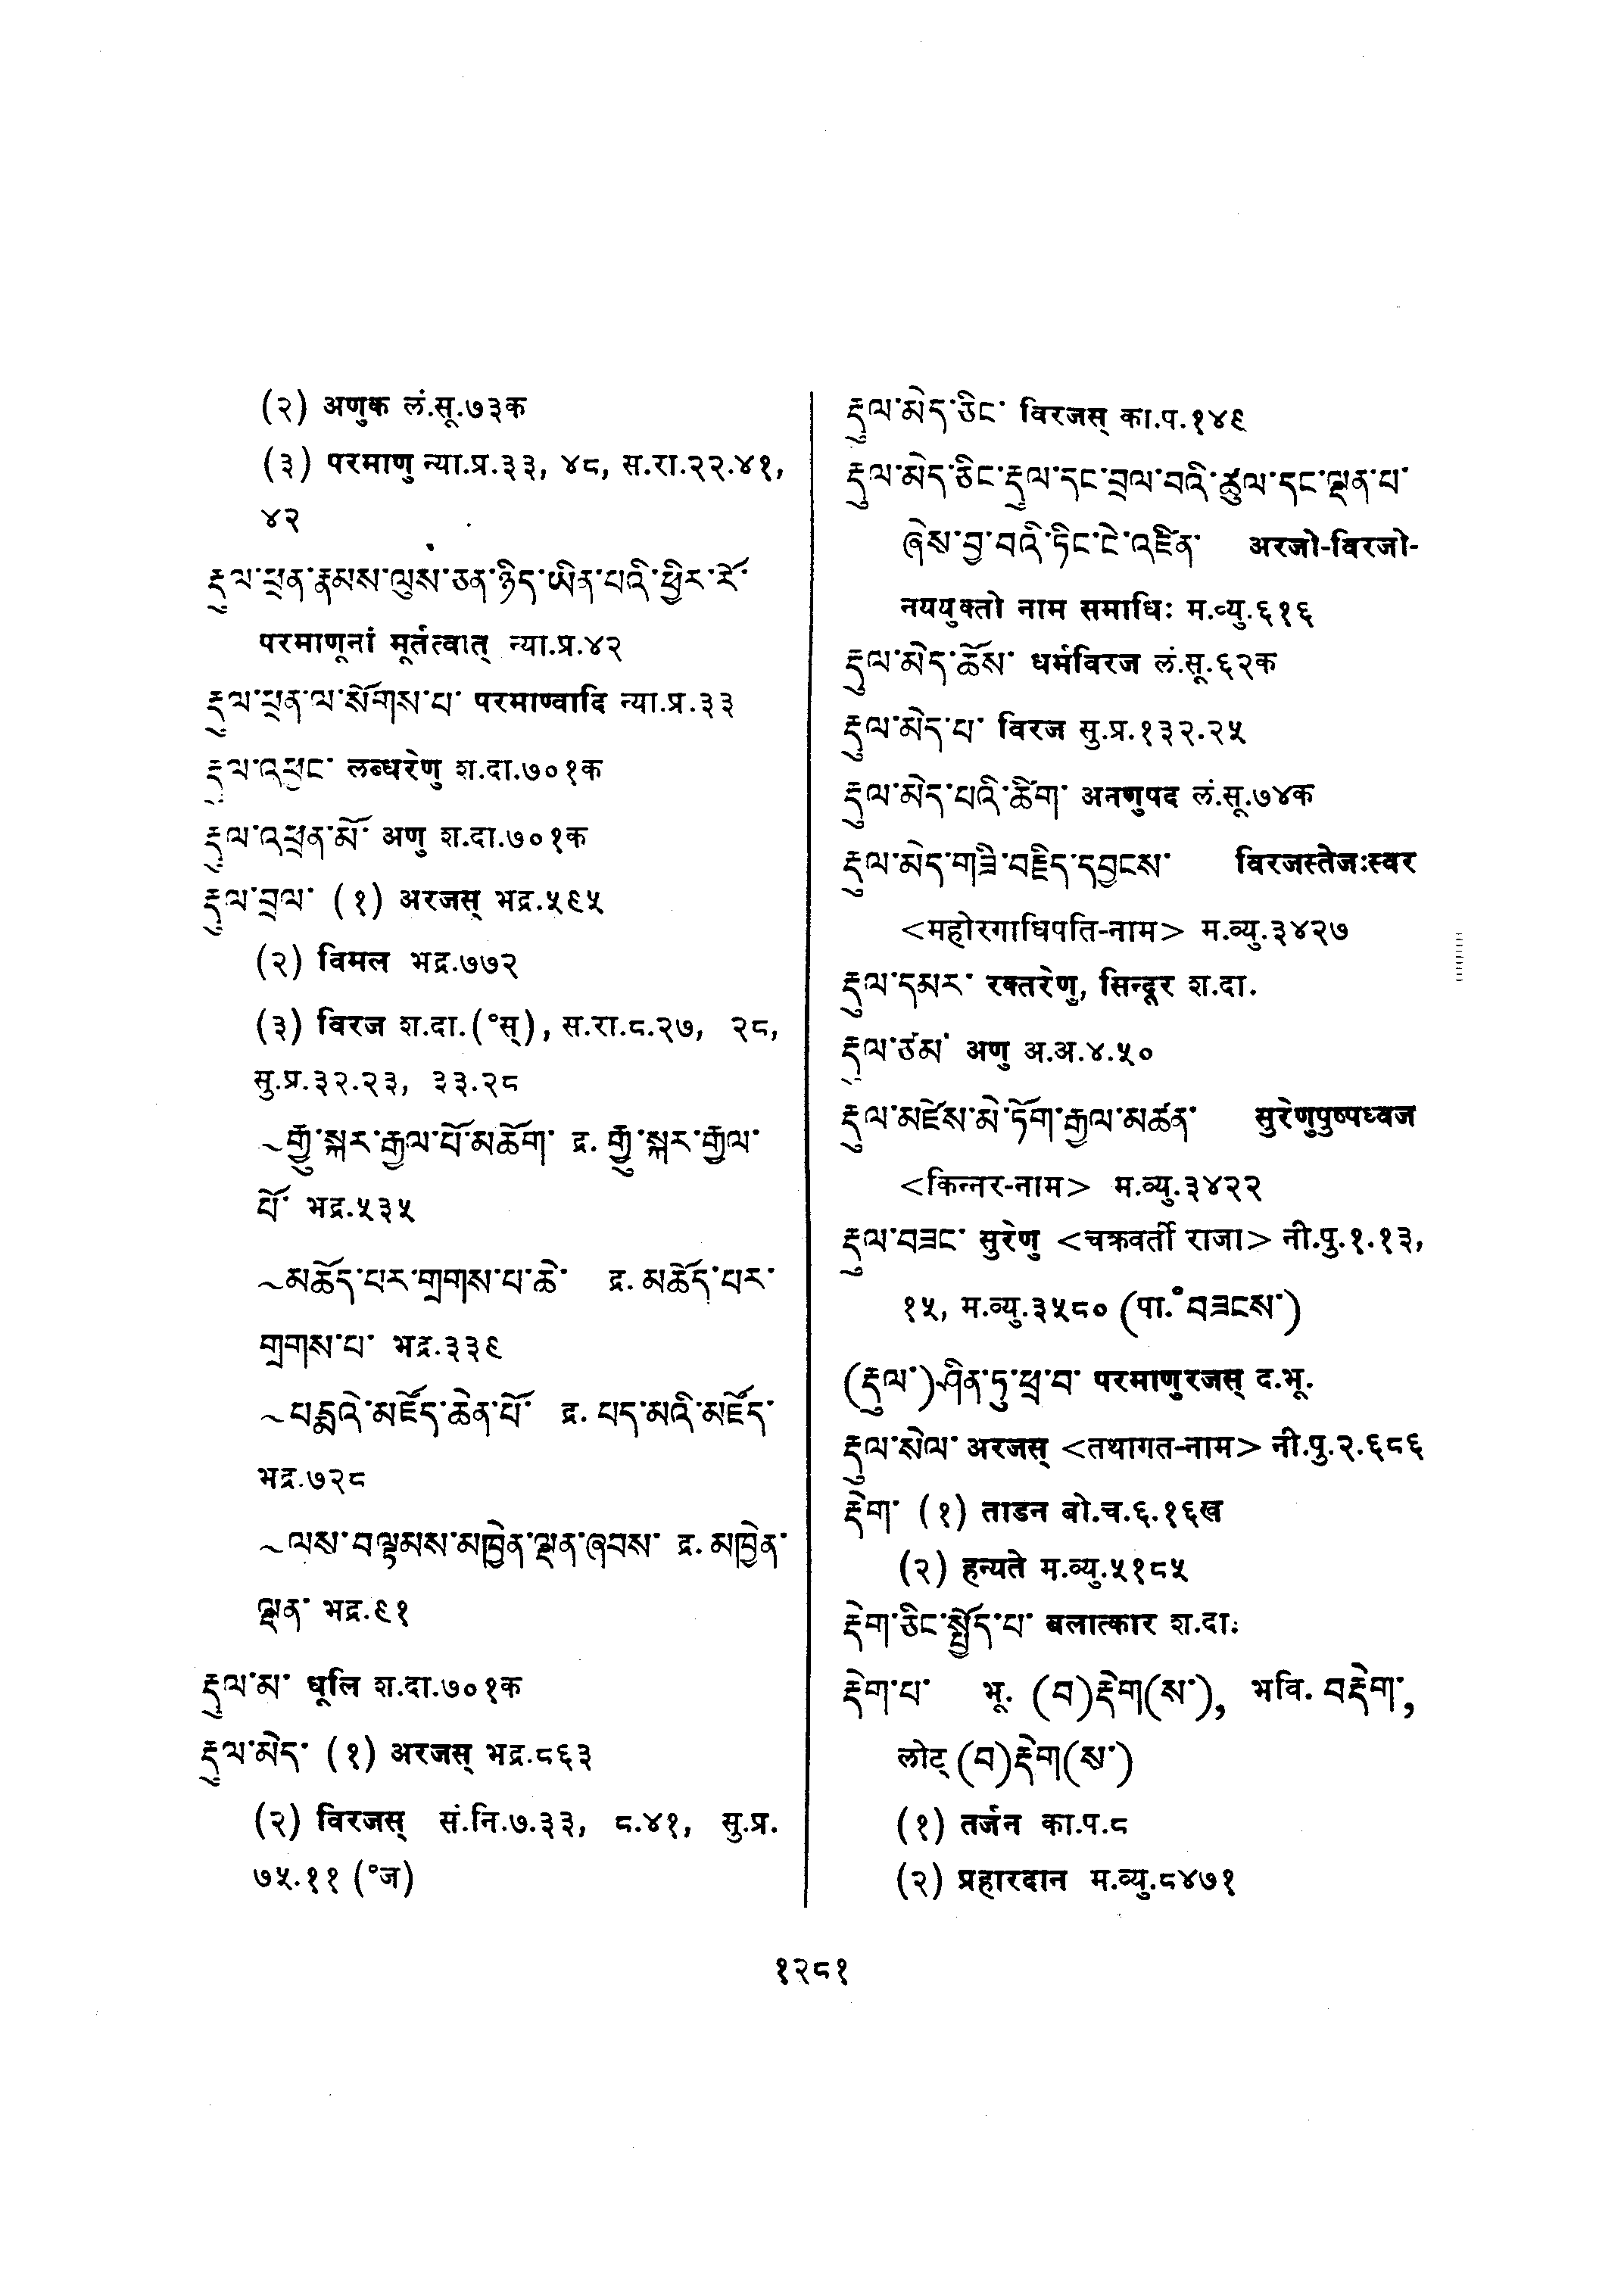 (२) अणुक लं.सू.७३क
(३) परमाणु न्या.प्र.३३, ४८, स.रा.२२.४१,
४२
རྡུལ་ཕྲན་རྣམས་ལུས་ཅན་ཉིད་ཡིན་པའི་ཕྱིར་རོ་
परमाणूनां मूर्तत्वात् न्या.प्र.४२
རྡུལ་ཕྲན་ལ་སོགས་པ་ परमाण्वादि न्या.प्र.३३
རྡུལ་འཕྱང་ लब्धरेणु श.दा.७०१क
རྡུལ་འཕྲན་མོ་ अणु श.दा.७०१क
རྡུལ་བྲལ་ (१) अरजस् भद्र.५९५
(२) विमल भद्र.७७२
(३) विरज श.दा.(°स्), स.रा.८.२७, २८,
सु.प्र.३२.२३, ३३.२८
~རྒྱུ་སྐར་རྒྱལ་པོ་མཆོག་ द्र. རྒྱུ་སྐར་རྒྱལ་
པོ་ भद्र.५३५
~མཆོད་པར་གྲགས་པ་ཆེ་ द्र. མཆོད་པར་
གྲགས་པ་ भद्र.३३९
~པདྨའི་མཛོད་ཆེན་པོ་ द्र. པད་མའི་མཛོད་
भद्र.७२८
~ལས་བལྟམས་མཁྱེན་ལྡན་ཞབས་ द्र. མཁྱེན་
ལྡན་ भद्र.९१
རྡུལ་མ་ धूलि श.दा.७०१क
རྡུལ་མེད་ (१) अरजस् भद्र.८६३
(२) विरजस् सं.नि.७.३३, ८.४१, सु.प्र.
७५.११ (°ज)
རྡུལ་མེད་ཅིང་ विरजस् का.प.१४९
རྡུལ་མེད་ཅིང་རྡུལ་དང་བྲལ་བའི་ཚུལ་དང་ལྡན་པ་
ཞེས་བྱ་བའི་ཏིང་ངེ་འཛིན་ अरजो-विरजो-
नययुक्तो नाम समाधिः म.व्यु.६१६
རྡུལ་མེད་ཆོས་ धर्मविरज लं.सू.६२क
རྡུལ་མེད་པ་ विरज सु.प्र.१३२.२५
རྡུལ་མེད་པའི་ཚིག་ अनणुपद लं.सू.७४क
རྡུལ་མེད་གཟི་བརྗིད་དབྱངས་ विरजस्तेजःस्वर
<महोरगाधिपति-नाम> म.व्यु.३४२७
རྡུལ་དམར་ रक्तरेणु, सिन्दूर श.दा.
རྡུལ་ཙམ་ अणु अ.अ.४.५०
རྡུལ་མཛེས་མེ་ཏོག་རྒྱལ་མཚན་ सुरेणुपुष्पध्वज
<किन्नर-नाम> म.व्यु.३४२२
རྡུལ་བཟང་ सुरेणु <चक्रवर्ती राजा> नी.पु.१.१३,
१५, म.व्यु.३५८० (पा.°བཟངས་)
(རྡུལ་)ཤིན་ཏུ་ཕྲ་བ་ परमाणुरजस् द.भू.
རྡུལ་སེལ་ अरजस् <तथागत-नाम> नी.पु.२.६८६
རྡེག་ (१) ताडन बो.च.६.१६ख
(२) हन्यते म.व्यु.५१८५
རྡེག་ཅིང་སྤྱོད་པ་ बलात्कार श.दा.
རྡེག་པ་ भू. (བ)རྡེག(ས་), भवि. བརྡེག་,
लोट् (བ)རྡེག(ས་)
(१) तर्जन का.प.८
(२) प्रहारदान म.व्यु.८४७१
१२८१